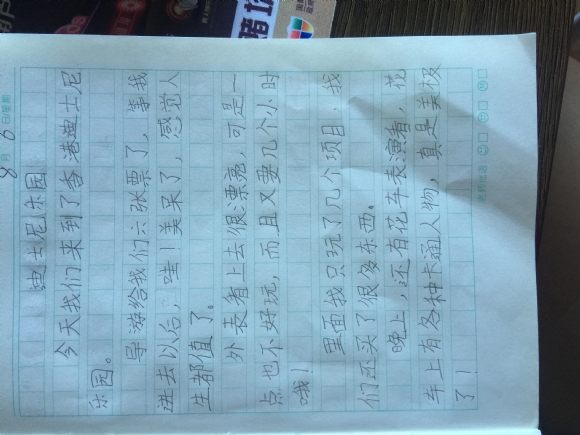 8月6日 星期
迪士尼乐园
今天我们来到了香港迪士尼
乐园。
导游给我们六张票了，等我
进去以后，哇！美呆了，感觉人
生都值了。
外表看上去很漂亮，可是一
点也不好玩，而且又要几个小时
哦！
里面我只玩了几个项目，我
们还买了很多东西。
晚上，还有花车表演看，花
车上有各种卡通人物，真是美极
了！